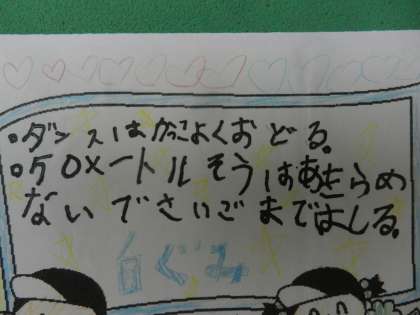 ・ダンスはかっこよくおどる。
・50メートルそうはあきらめ
ないでさいごまではしる。
白ぐみ